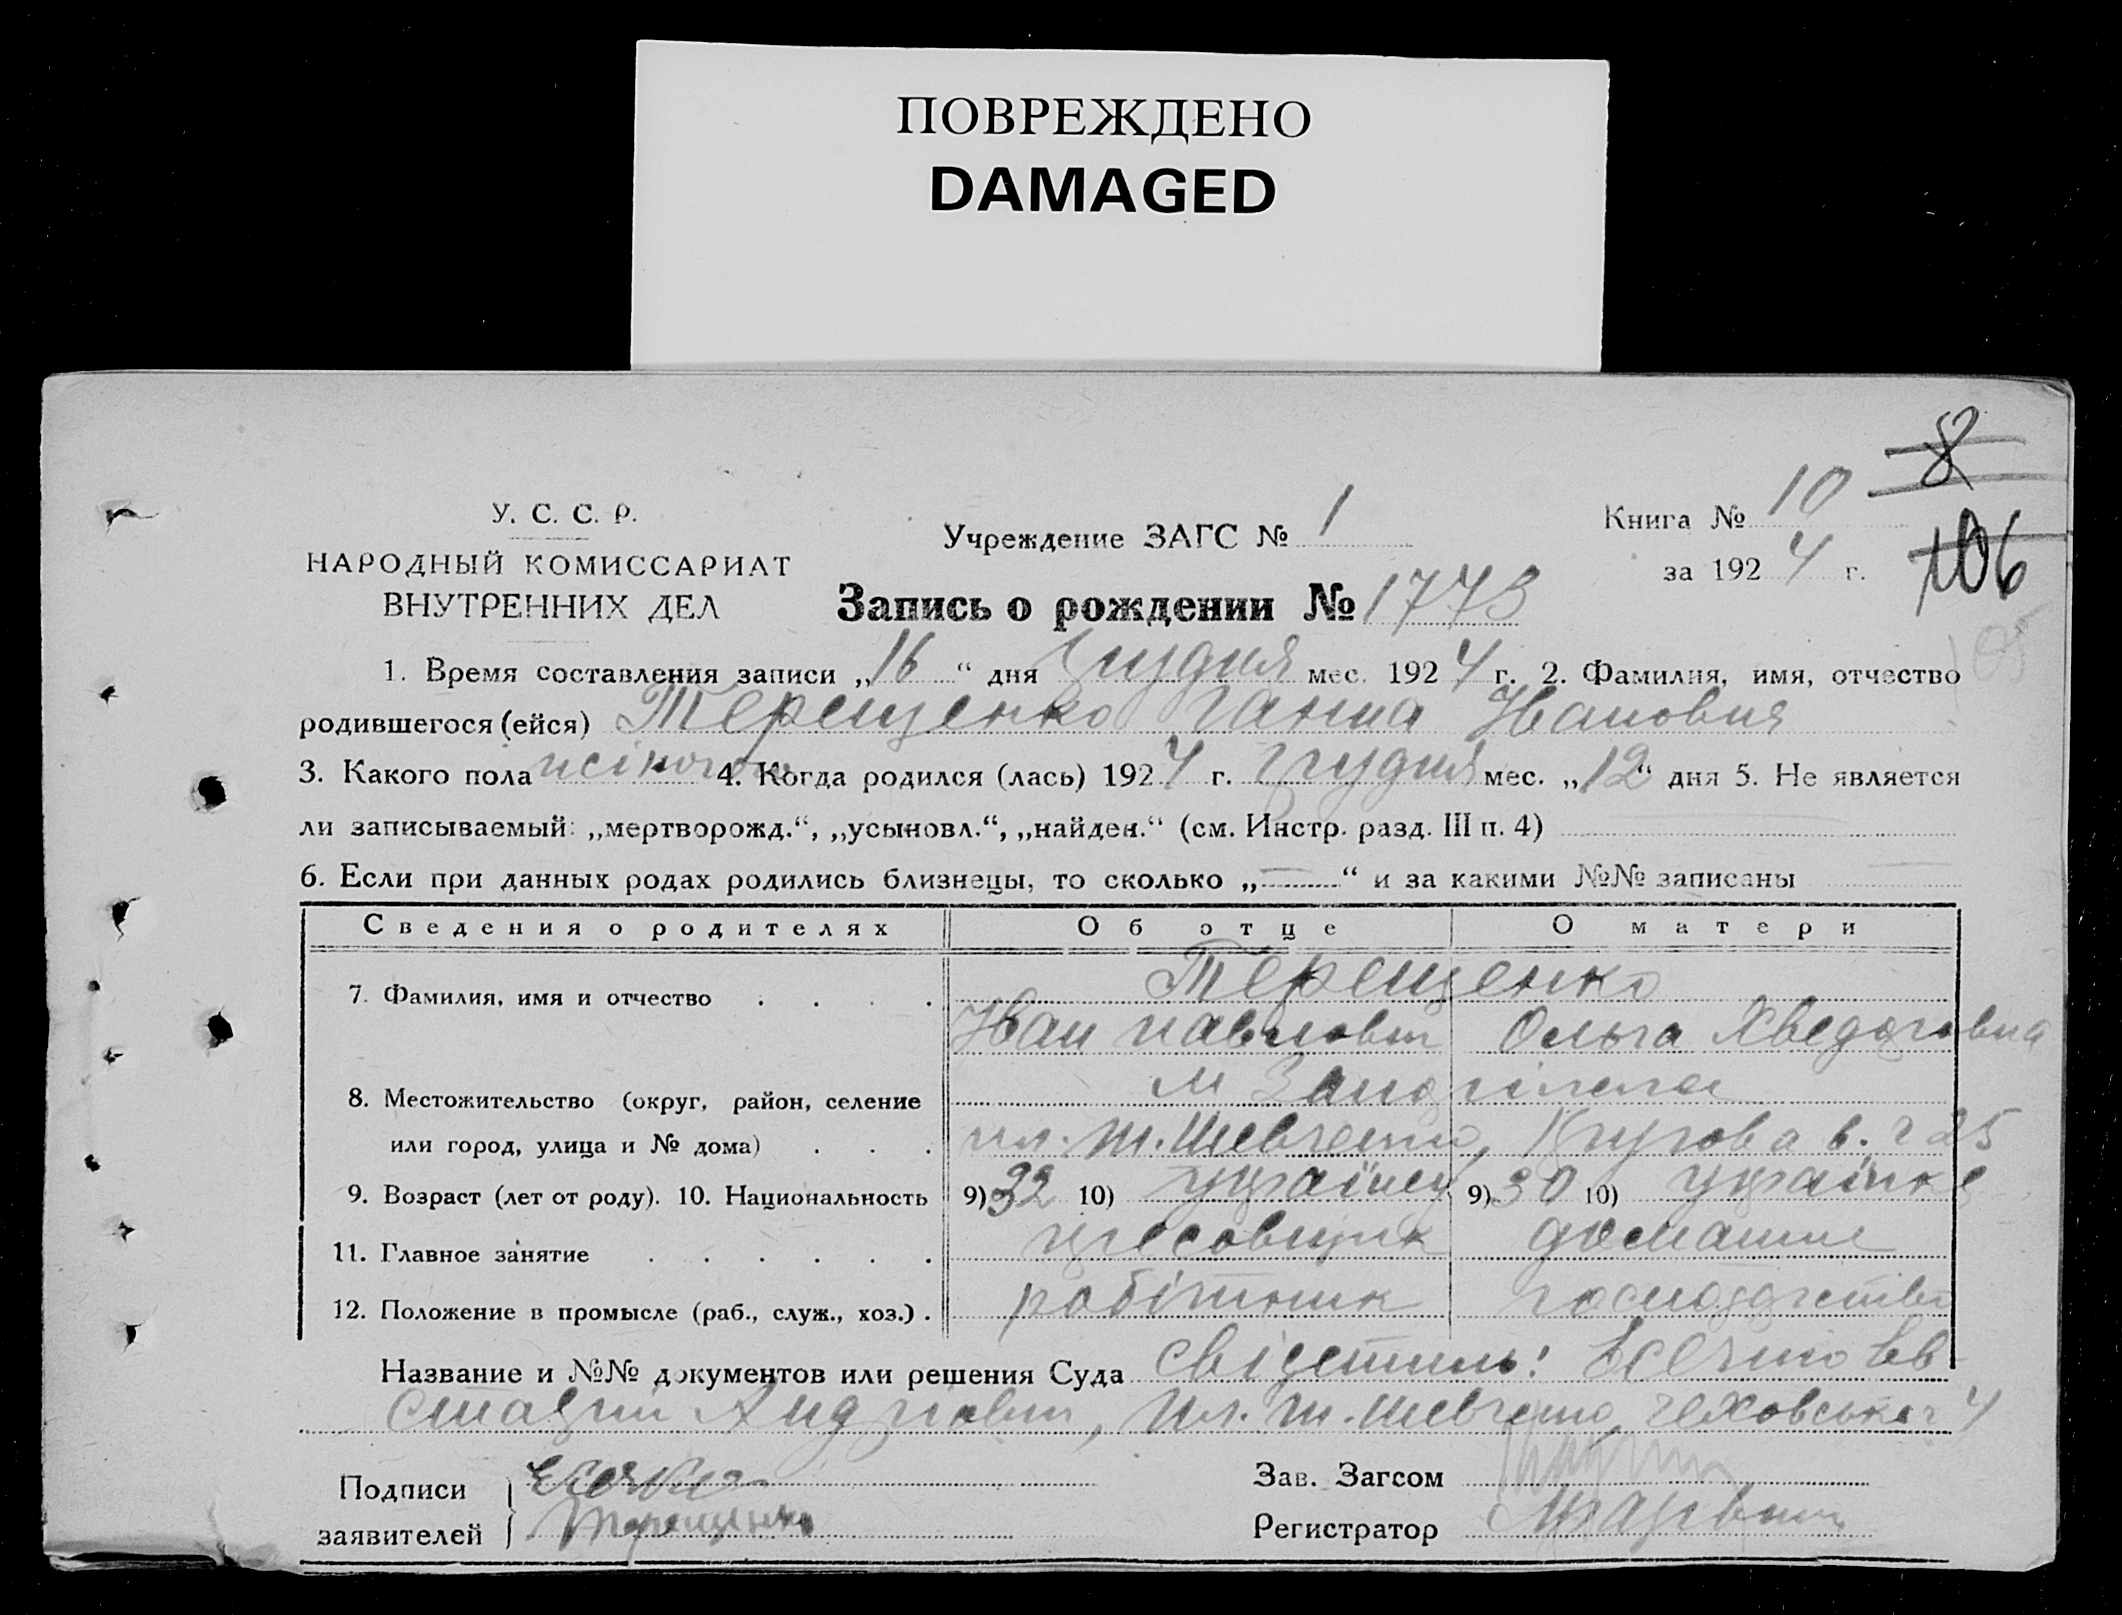 ПОВРЕЖДЕНО
DAMAGED
8
106
105
У. С. С. Р.
НАРОДНЫЙ КОМИССАРИАТ
ВНУТРЕННИХ ДЕЛ
Учреждение ЗАГС № 1
Книга № 10
за 1924 г.
Запись о рождении № 1773
1. Время составления записи „16“ дня Грудня мес. 1924 г. 2. Фамилия, имя, отчество
родившегося (ейся) Терещенко Ганна Ивановна
3. Какого пола жіночого 4. Когда родился (лась) 1924 г. Грудня мес. „12“ дня 5. Не является
ли записываемый: „мертворожд.“, „усыновл.“, „найден.“ (см. Инстр. разд. III п. 4)
6. Если при данных родах родились близнецы, то сколько „—“ и за какими №№ записаны —
Сведения о родителях Об отце О матери
7. Фамилия, имя и отчество . . . . Терещенко
Иван Павлович Ольга Хведоровна
8. Местожительство (округ, район, селение м
или город, улица и № дома) . . . Т. Шевченко, 25
9. Возраст (лет от роду). 10. Национальность 9) 32 10) українец 9) 30 10) українка
11. Главное занятие . . . . . . домашне
12. Положение в промысле (раб., служ., хоз.) . робітник господарство
Название и №№ документов или решения Суда свідетиль: Ев-
Андріевич, Т. Шевченко, Чеховська 4
Подписи
заявителей Терещенко
Зав. Загсом
Регистратор